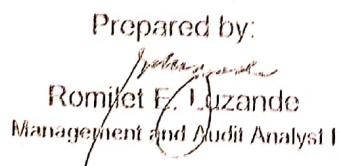 Prepared by:
Romilet E. Luzande
Management and Audit Analyst I